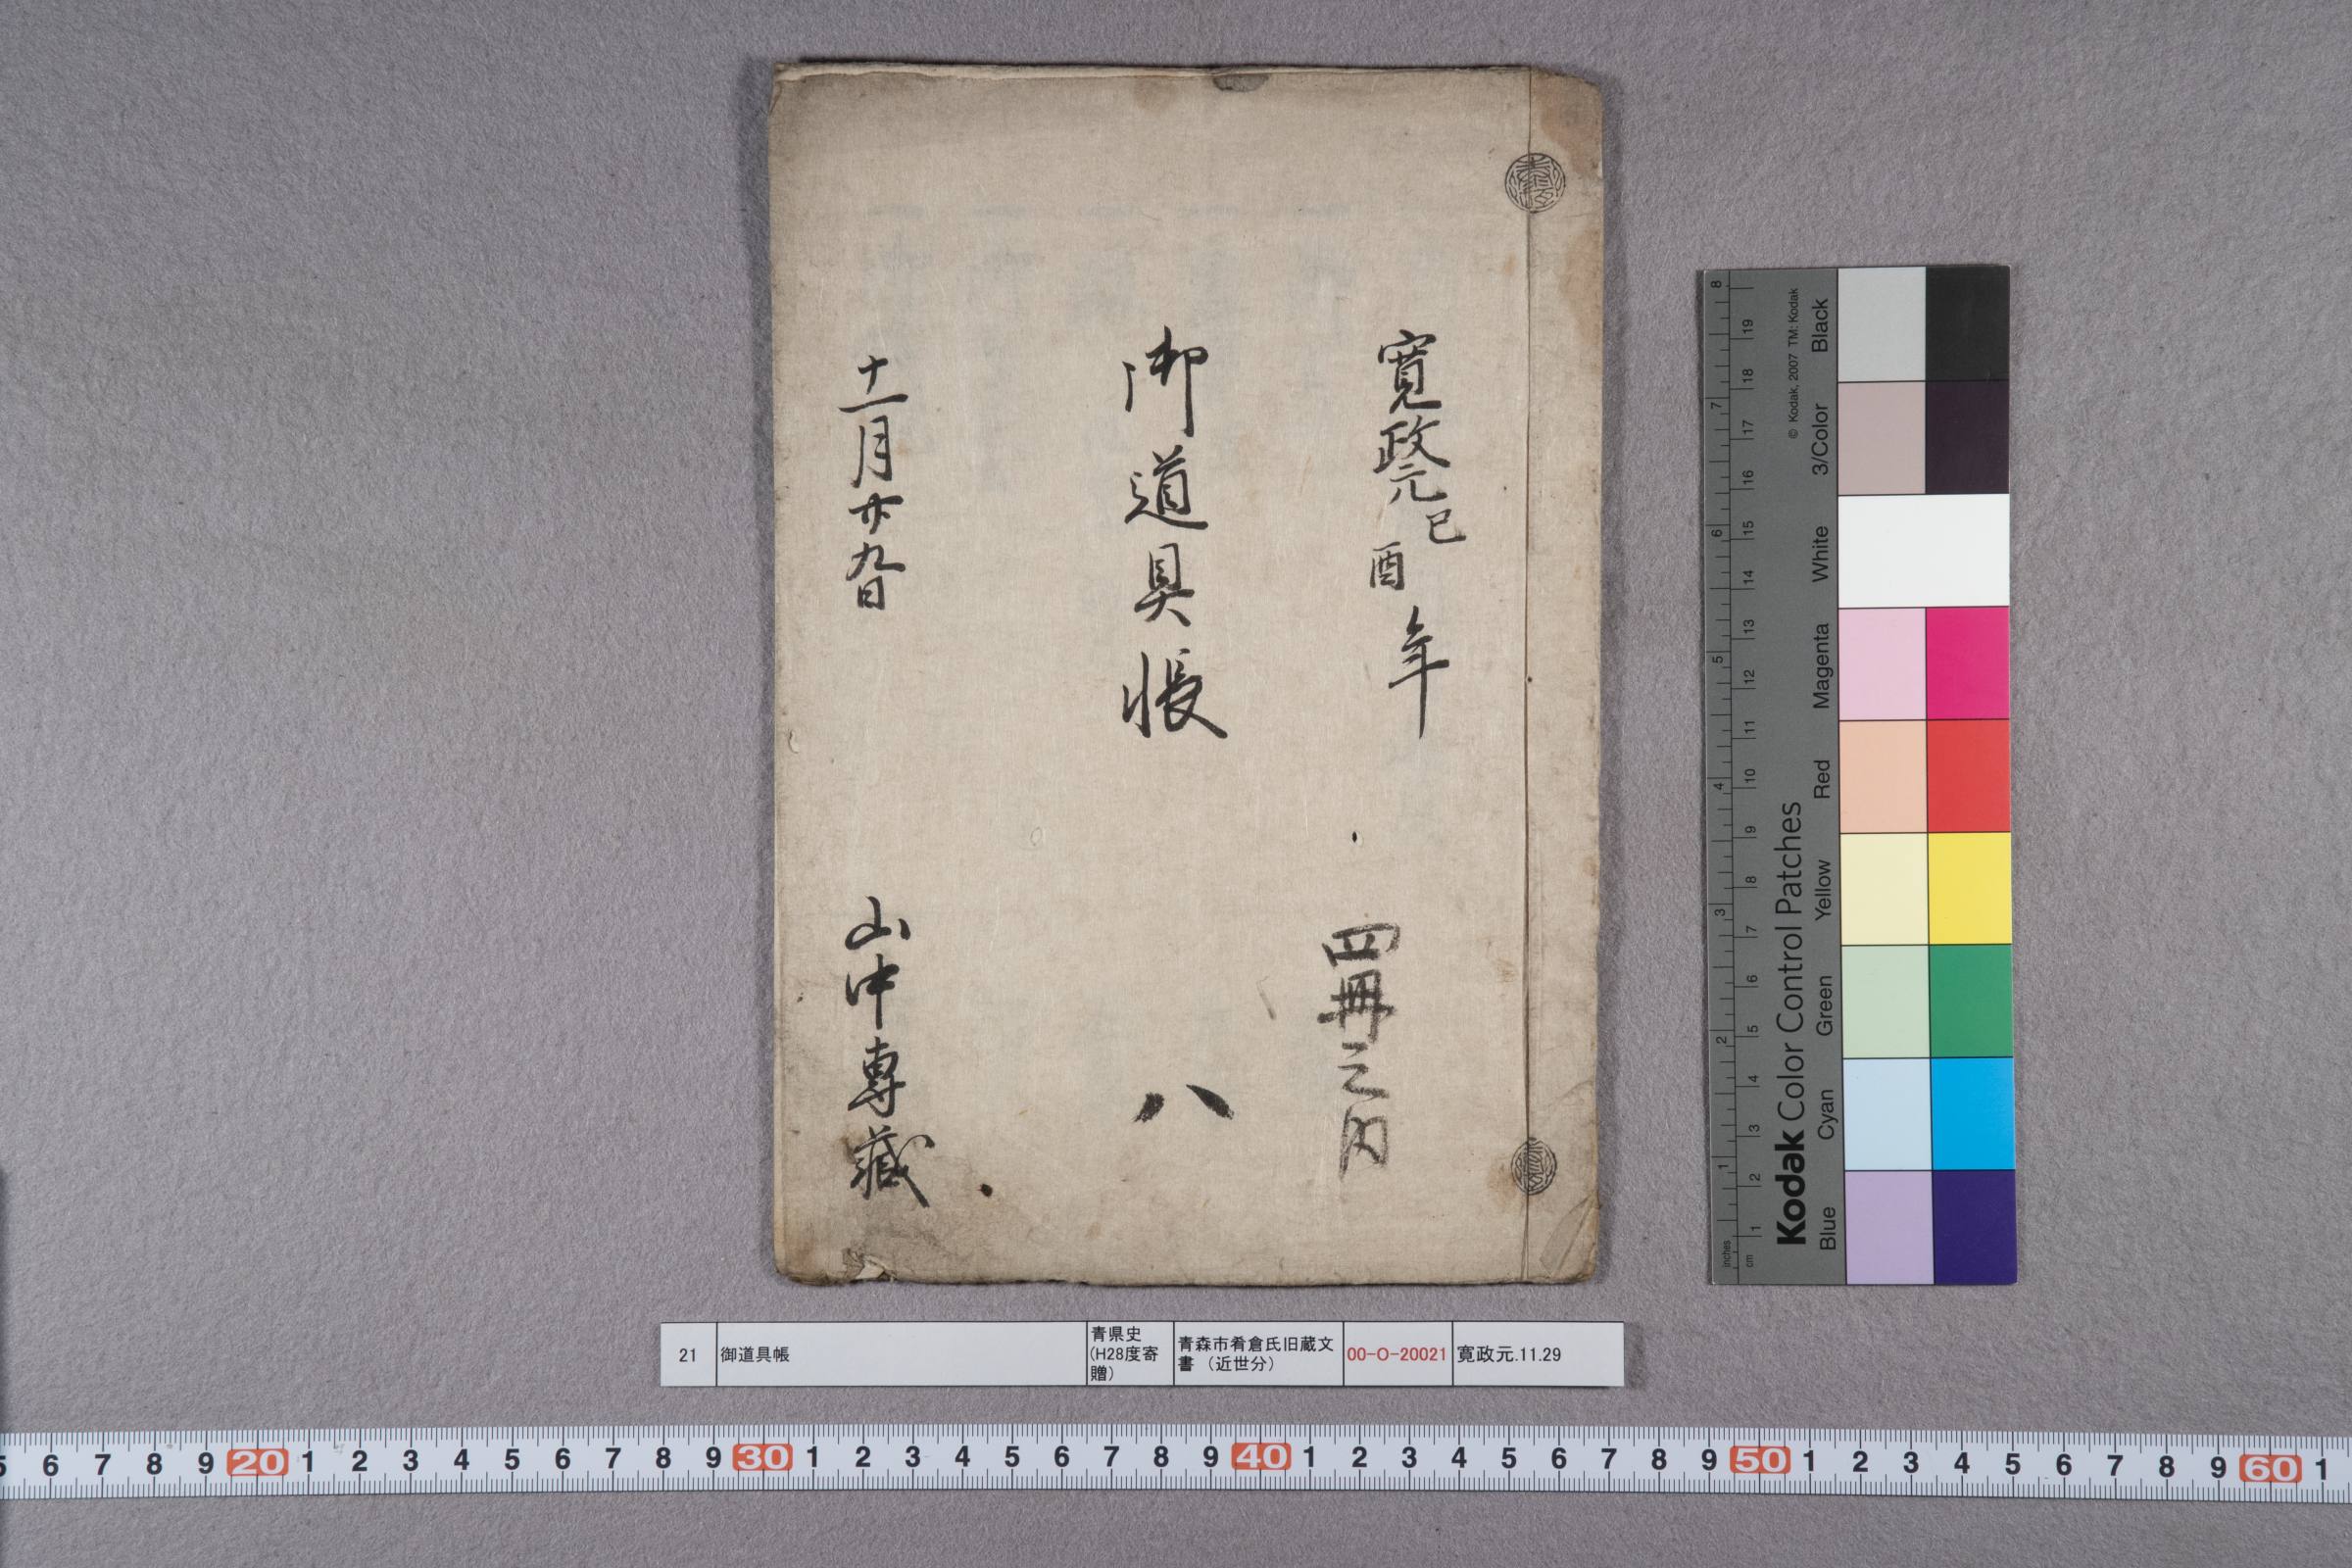 寛政元己酉年
四冊之内
御道具帳
八
十一月廿九日
山中専蔵
21
御道具帳
青県史
(H28度寄
贈)
青森市肴倉氏旧蔵文
書（近世分）
00-O-20021
寛政元.11.29
Kodak Color Control Patches
© Kodak, 2007 TM: Kodak
Black
3/Color
White
Magenta
Red
Yellow
Green
Cyan
Blue
inches
cm
8 7 6 5 4 3 2 1
19 18 17 16 15 14 13 12 11 10 9 8 7 6 5 4 3 2 1
5 6 7 8 9 20 1 2 3 4 5 6 7 8 9 30 1 2 3 4 5 6 7 8 9 40 1 2 3 4 5 6 7 8 9 50 1 2 3 4 5 6 7 8 9 60 1